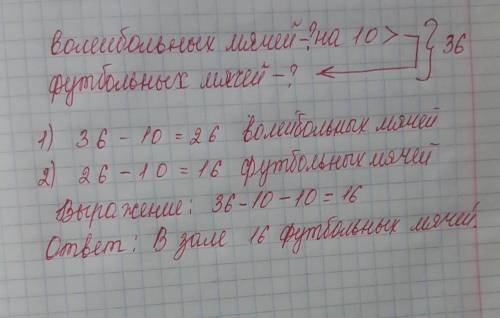 волейбольных мячей-? на 10 > } 36
футбольных мячей-?
1) 36 - 10 = 26 волейбольных мячей
2) 26 - 10 = 16 футбольных мячей
Выражение: 36-10-10=16
Ответ: В зале 16 футбольных мячей.